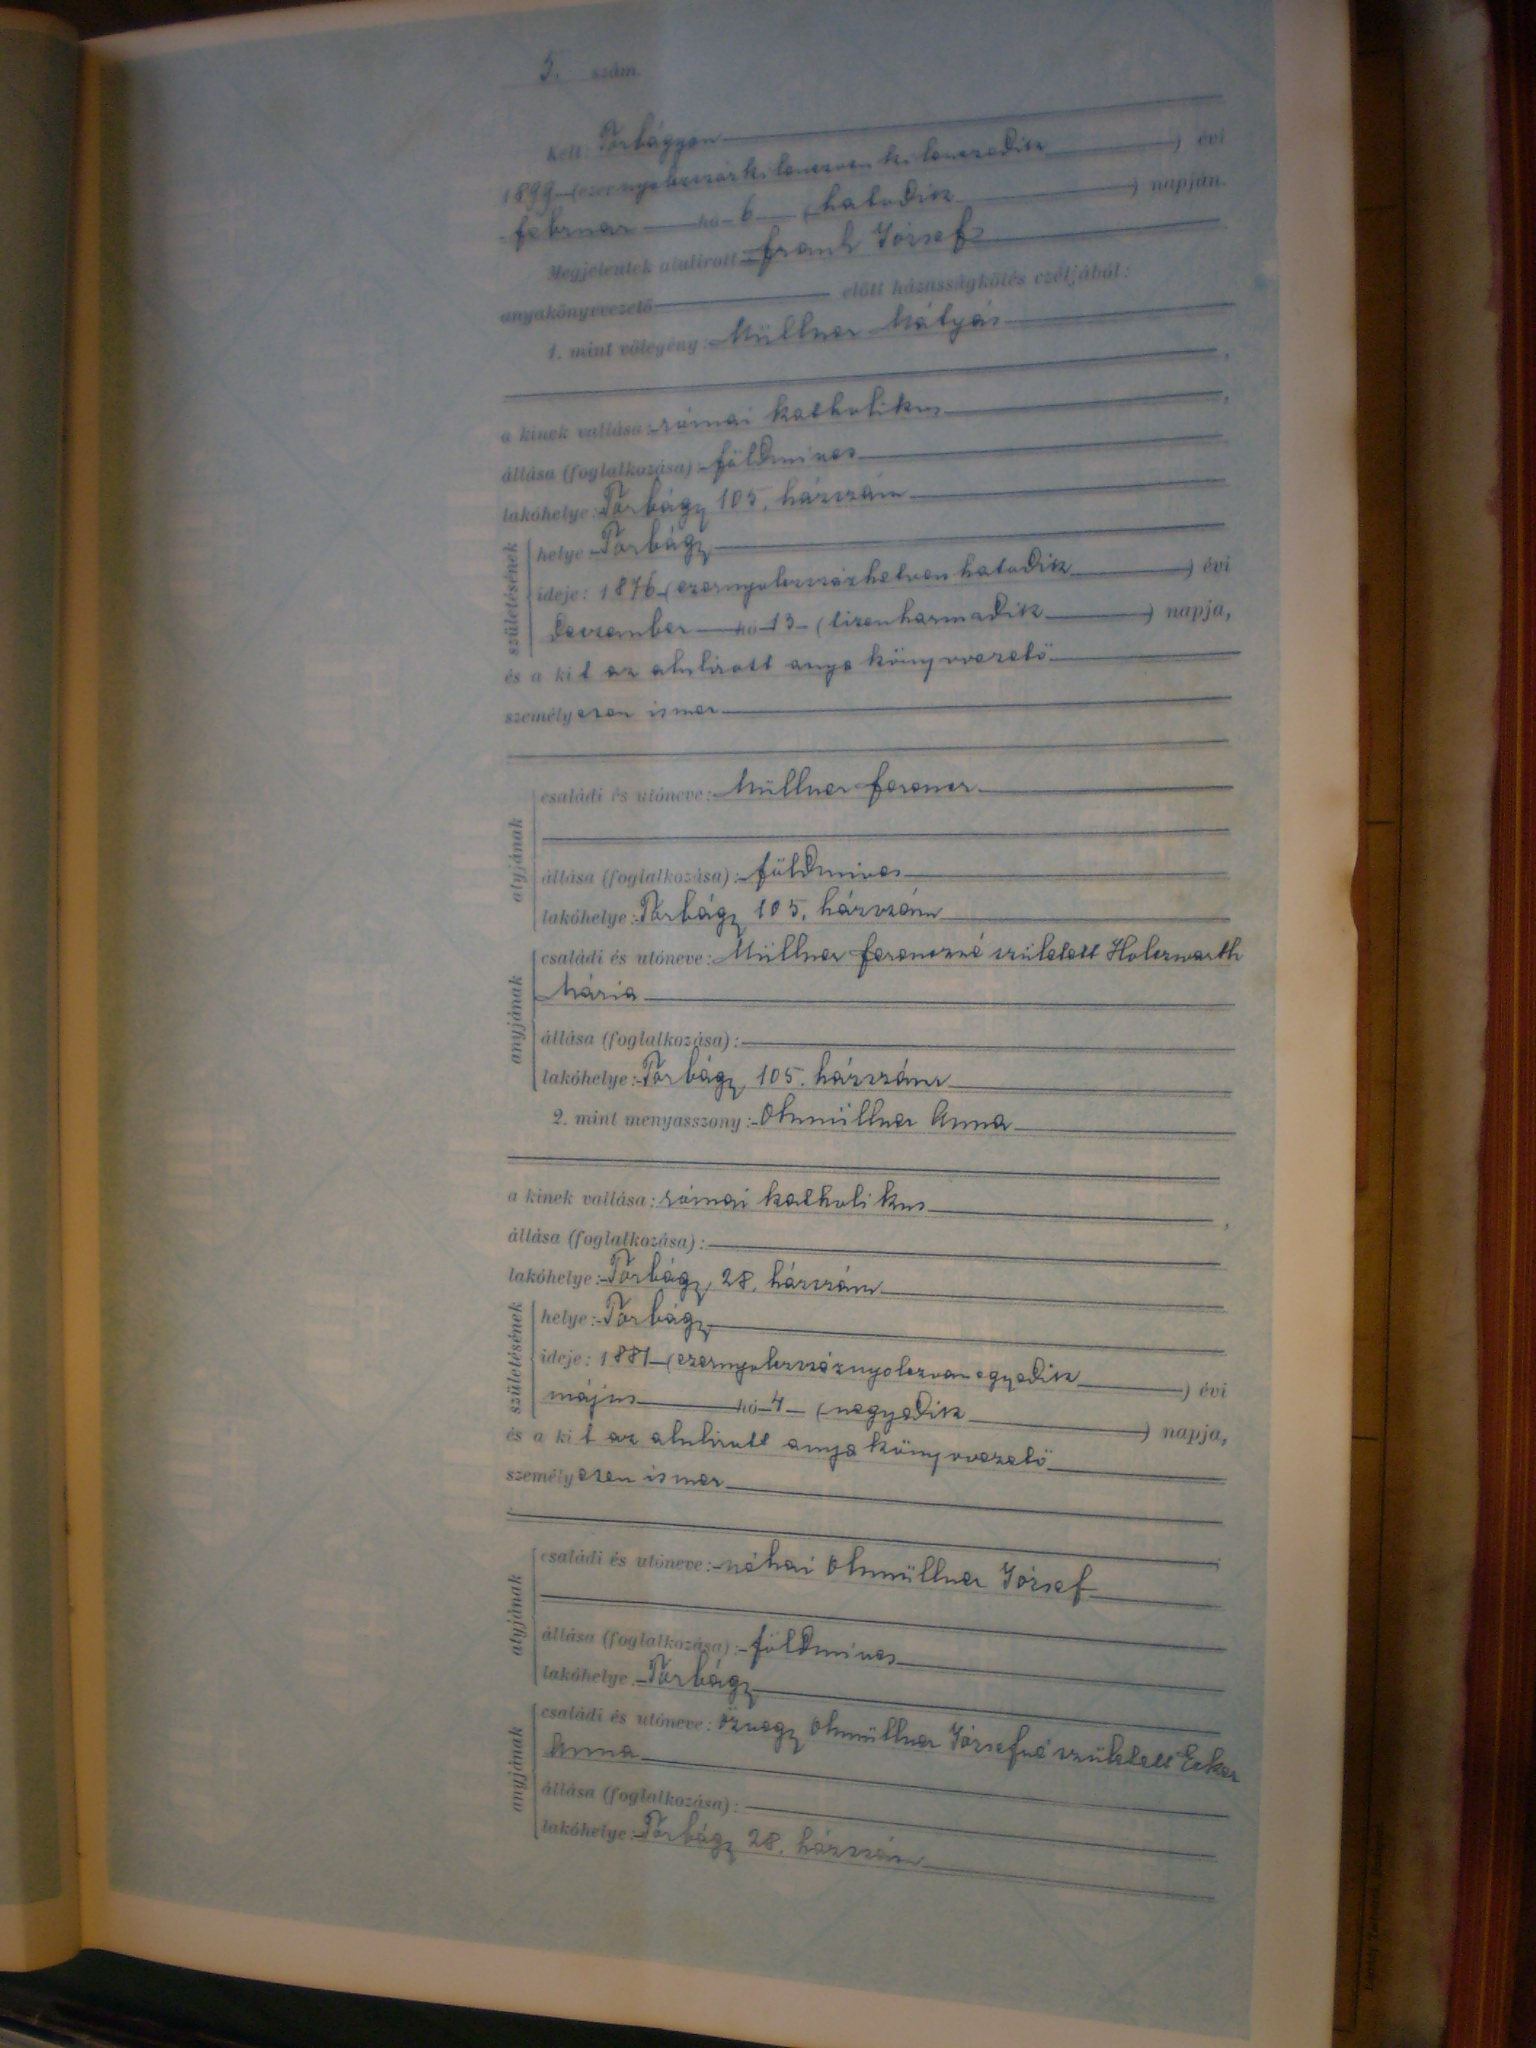 5. szám.
Kelt: Torbágyon
1899 (ezernyolczszázkilenczvenkilenczedik) évi
februar hó 6 (hatodik) napján.
Megjelentek alulírott Frank József
anyakönyvvezető előtt házasságkötés czéljából:
1. mint vőlegény: Müllner Mátyás
a kinek vallása: római katholikus,
állása (foglalkozása): földmives
lakóhelye: Torbágy 105. házszám
születésének
helye Torbágy
ideje: 1876 (ezernyolczszázhetvenhatodik) évi
deczember hó 13 (tizenharmadik) napja,
és a kit az alulirott anyakönyvvezető
személyesen ismer
atyjának
családi és utóneve: Müllner Ferencz
állása (foglalkozása): földmives
lakóhelye: Torbágy 105. házszám
anyjának
családi és utóneve: Müllner Ferenczné született Holczwarth
Mária
állása (foglalkozása):
lakóhelye: Torbágy 105. házszám
2. mint menyasszony: Ohmüllner Anna
a kinek vallása: római katholikus,
állása (foglalkozása):
lakóhelye: Torbágy 28. házszám
születésének
helye: Torbágy
ideje: 1881 (ezernyolczszáznyolczvanegyedik) évi
május hó 4 (negyedik) napja,
és a kit az alulirott anyakönyvvezető
személyesen ismer
atyjának
családi és utóneve: néhai Ohmüllner József
állása (foglalkozása): földmives
lakóhelye Torbágy
anyjának
családi és utóneve: özvegy Ohmüllner Józsefné született Ecker
Anna
állása (foglalkozása):
lakóhelye: Torbágy 28. házszám